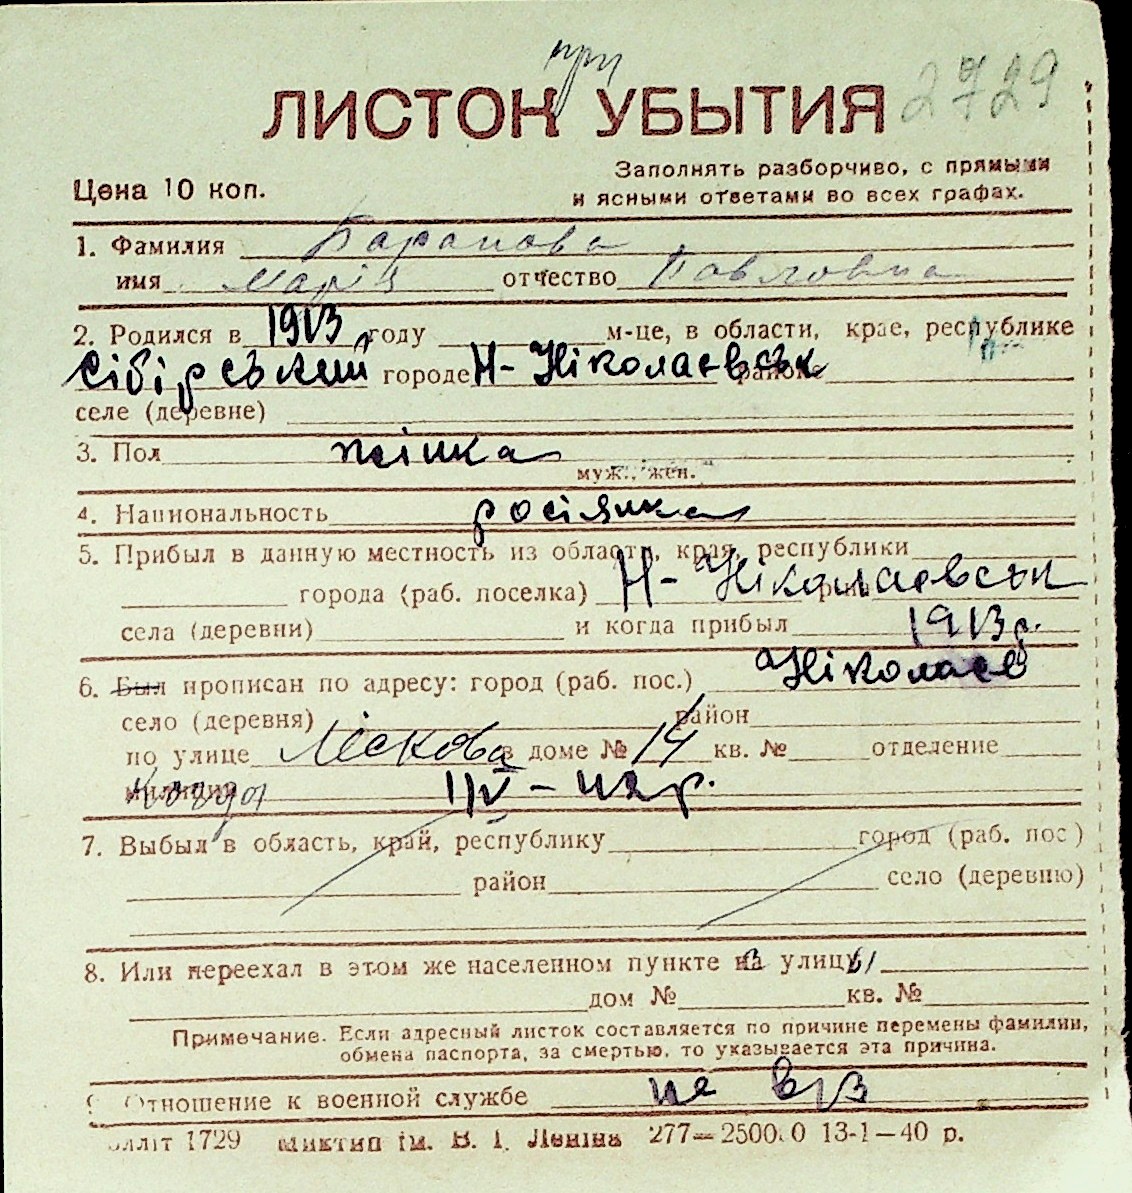 при
ЛИСТОК УБЫТИЯ 2729
Цена 10 коп.
Заполнять разборчиво, с прямыми
и ясными ответами во всех графах.
1. Фамилия Баранова
имя Марія отчество Павловна
2. Родился в 1913 году м-це, в области, крае, республике
Сібірський городе Н-Ніколаєвськ районе
селе (деревне)
3. Пол жінка
муж., жен.
4. Национальность росіянка
5. Прибыл в данную местность из области, края, республики
города (раб. поселка) Н-Ніколаєвськ
села (деревни) и когда прибыл 1913 р.
6. Был прописан по адресу: город (раб. пос.) Ніколаєв
село (деревня) район
по улице Лєскова в доме № 14 кв. № отделение
милиции Когда 1/IV-42р.
7. Выбыл в область, край, республику город (раб. пос)
район село (деревню)
8. Или переехал в этом же населенном пункте на улицу
дом № кв. №
Примечание. Если адресный листок составляется по причине перемены фамилии,
обмена паспорта, за смертью, то указывается эта причина.
Отношение к военной службе не в/з
1729 Миктип ім. В. І. Леніна 277—25000 13-1—40 р.